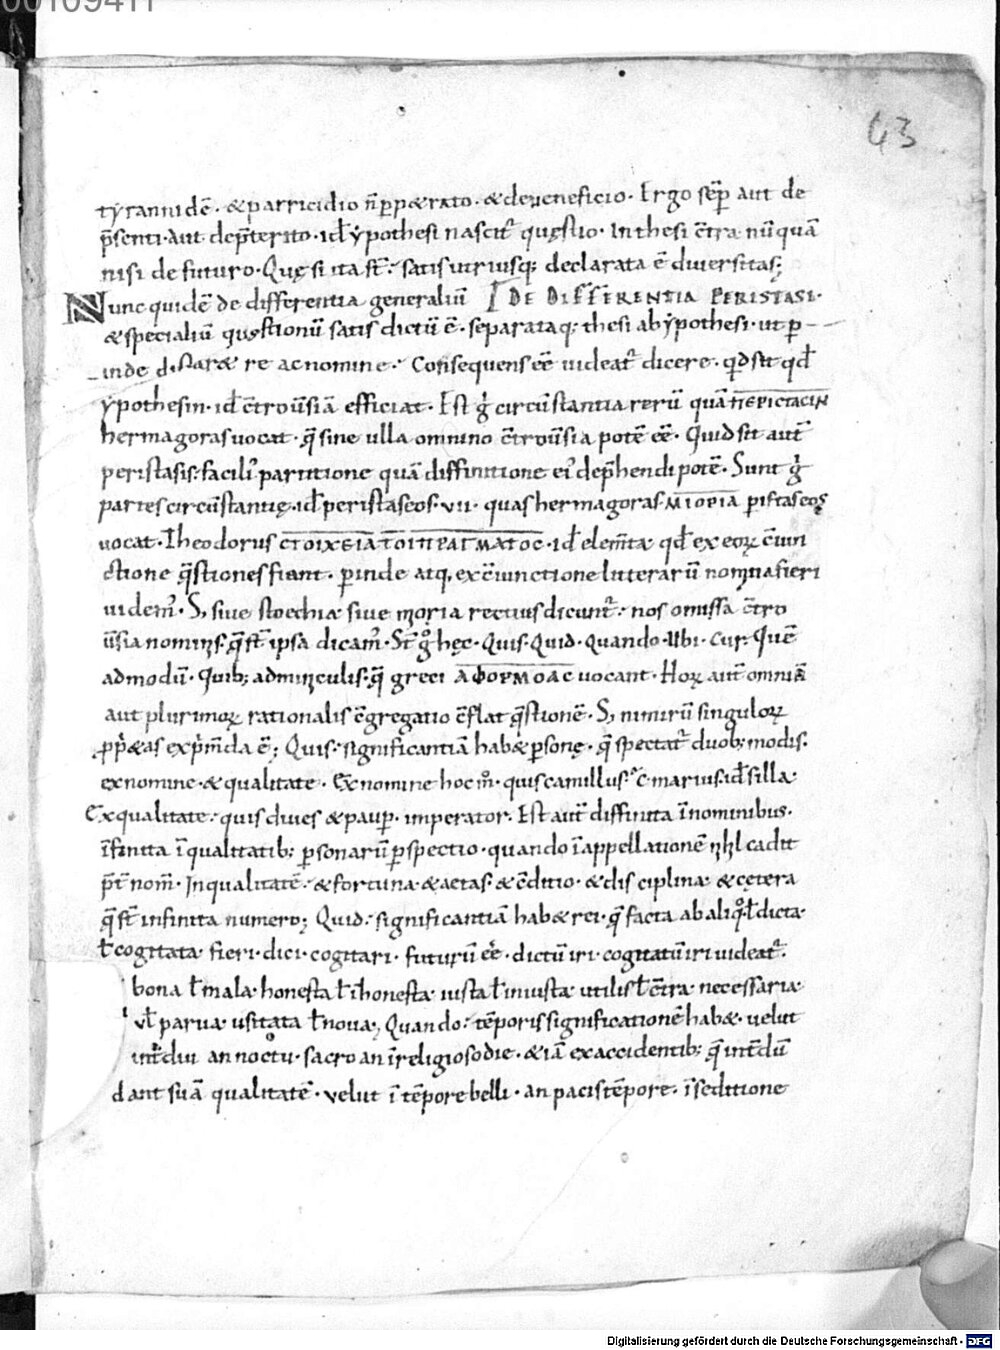 00109411
43
tẏrannidē · & parricidio n̄ pp&rato · & de ueneficio · Ergo sēp aut de
p̄senti · aut dep̄terito · id ẏpothesi nascit quęstio · In thesi c̄tra nū quā
nisi de futuro · Quę si ita st̄ · satis utriusq; declarata ē diuersitas;
Nunc quidē de differentia generaliū DE DIFFERENTIA PERISTASI ·
& specialiū quęstionū satis dictū ē · separataq; thesi ab ẏpothesi · ut p
inde distar& re ac nomine · Consequens eē uideat dicere · qd sit qd
ẏpothesin · id c̄trouūsiā efficiat · Est g circūstantia rerū quā ΠΕΡΙCΤΑCΙΝ
hermagoras uocat · q̄ sine ulla omnino c̄trouūsia potē eē · Quid sit aut̄
peristasis · facili partitione quā diffinitione ei dep̄hendi potē · Sunt g
partes circūstantię · id peristaseos · VII · quas hermagoras ΜΙΟΡΙΑ piſtaseos
uocat · Theodorus CΤΟΙΧΕΙΑ ΤΟΙΠΡΑΓΜΑΤΟC · id elem̄ta qd ex eoꝝ c̄iun
ctione q̄stiones fiant · pinde atq, ex c̄iunctione litterarū nomina fieri
uidem · S, siue stoechia siue moria rectius dicunt · nos omissa c̄tro
uūsia nominis · q̄ st̄ ipsa dicam · St̄ g hęc · Quis · Quid · Quando · Ubi · Cur · Quē
admodū · Quib; adminiculis · q̄ greci ΑΦΟΡΜΟΑC uocant · Hoꝝ aut̄ omniū
aut plurimoꝝ rationalis c̄gregatio c̄flat q̄stionē · S, nimirū singuloꝝ
pp&as exp̄m̄da ē; Quis · significantiā hab& psonę · q̄ spectat duob; modis ·
ex nomine · & qualitate · Ex nomine hoc m · quis camillus · c · marius · id silla ·
Ex qualitate · quis diues & paup · imperator · Est aut̄ diffinita ī nominibus ·
īfinita ī qualitatib; psonarū pspectio · quando ī appellationē nihil cadit
p̄t nom̄ · In qualitatē · & fortuna · & aetas · & c̄ditio · & disciplina & cętera
q̄ st̄ infinita numero; Quid · significantiā hab& rei · q̄ facta ab aliq ł dicta ·
ł cogitata fieri · dici · cogitari · futurū eē · dictū iri · cogitatū iri uideat ·
bona ł mala · honesta ł ihonesta iusta ł iniusta utilis ł c̄tra necessaria ·
uł parua usitata ł noua, Quando · tēporis significationē hab& · uelut
int̄diu an noctu · sacro an ireligioso die · & iā ex accidentib; q̄ int̄dū
dant suā qualitatē · uelut ī tēpore belli · an pacis tēpore · ī seditione
Digitalisierung gefördert durch die Deutsche Forschungsgemeinschaft - DFG